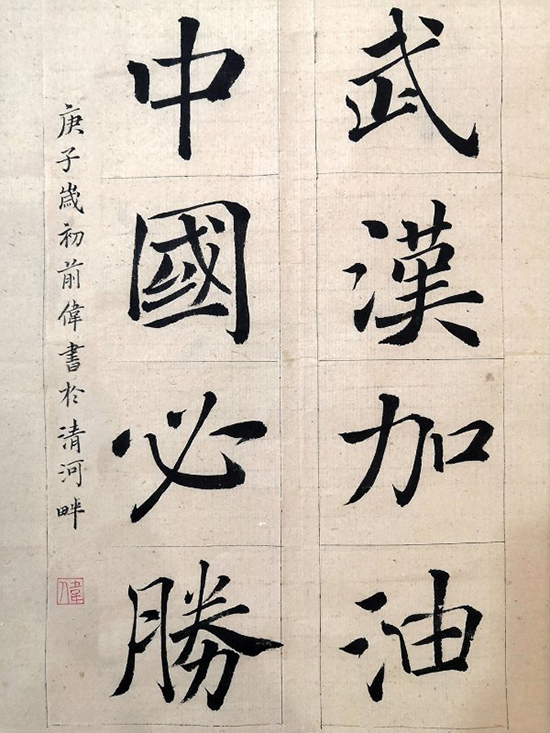 武漢加油
中國必勝
庚子歲初前偉書於清河畔
偉